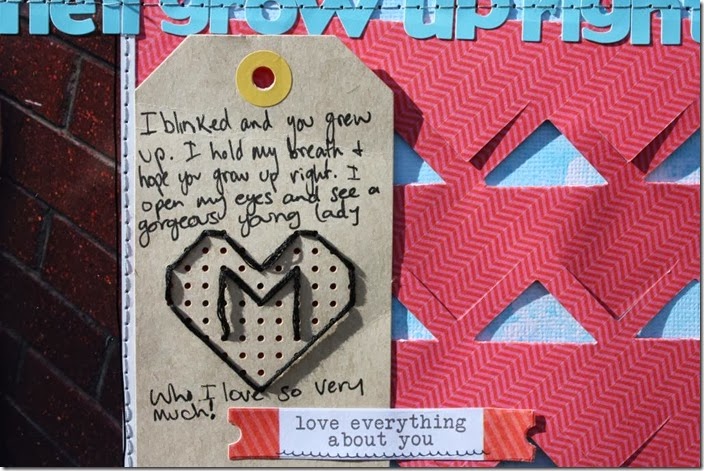 grow up right
I blinked and you grew
up. I hold my breath +
hope you grow up right. I
open my eyes and see a
gorgeous young lady
M
Who I love so very
much!
love everything
about you